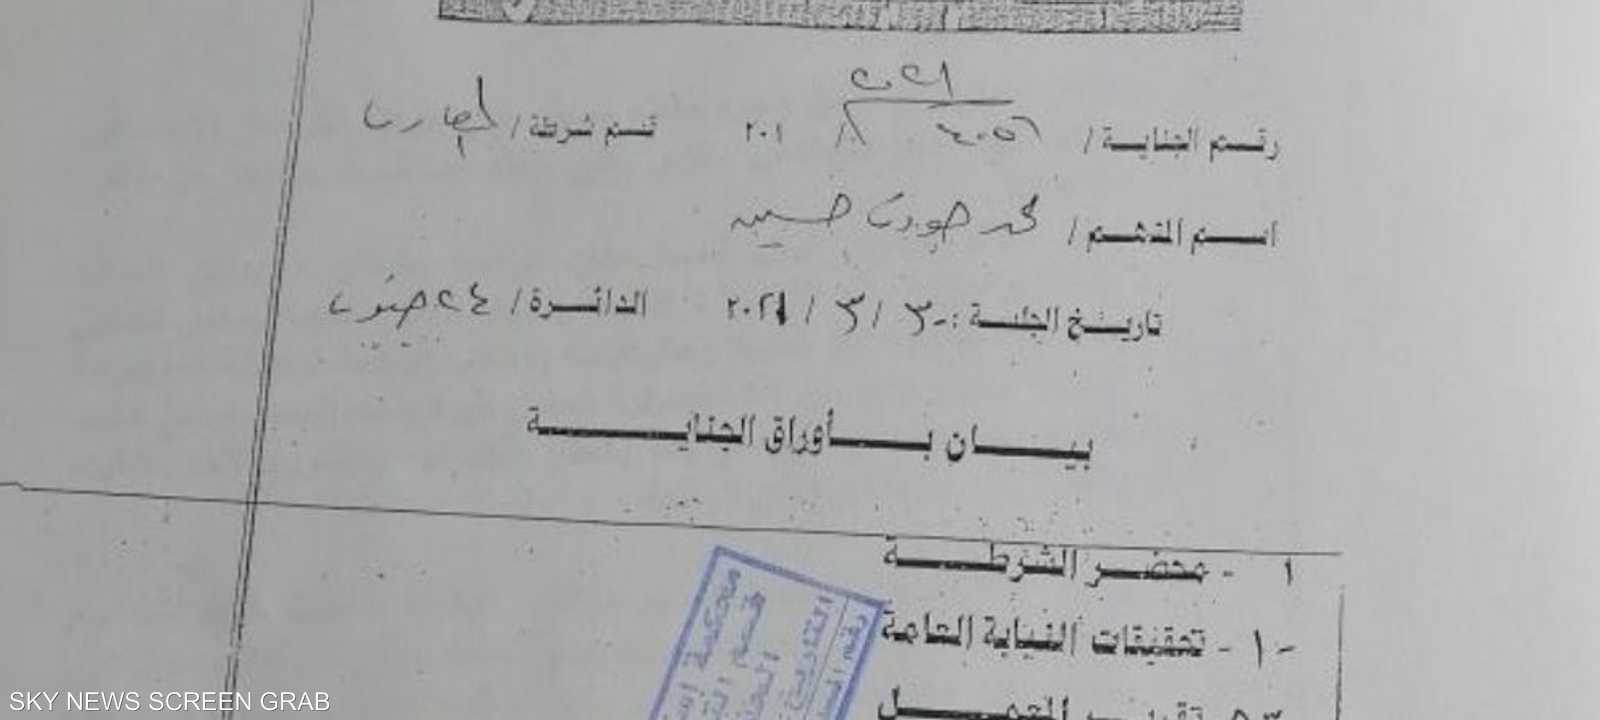 ٢٠٢١
رقم الجناية / ٤٠٥٦ / ٢٠١ قسم شرطة / المعادى
اسم المتهم / محمد جودت حسين
تاريخ الجلسة :- ٣٠ / ٣ / ٢٠٢١ الدائرة / ٢٤ جنوب
بيان بأوراق الجناية
١ - محضر الشرطة
-١- تحقيقات النيابة العامة
٣ - تقرير المعمل
محكمة
قسم
SKY NEWS SCREEN GRAB